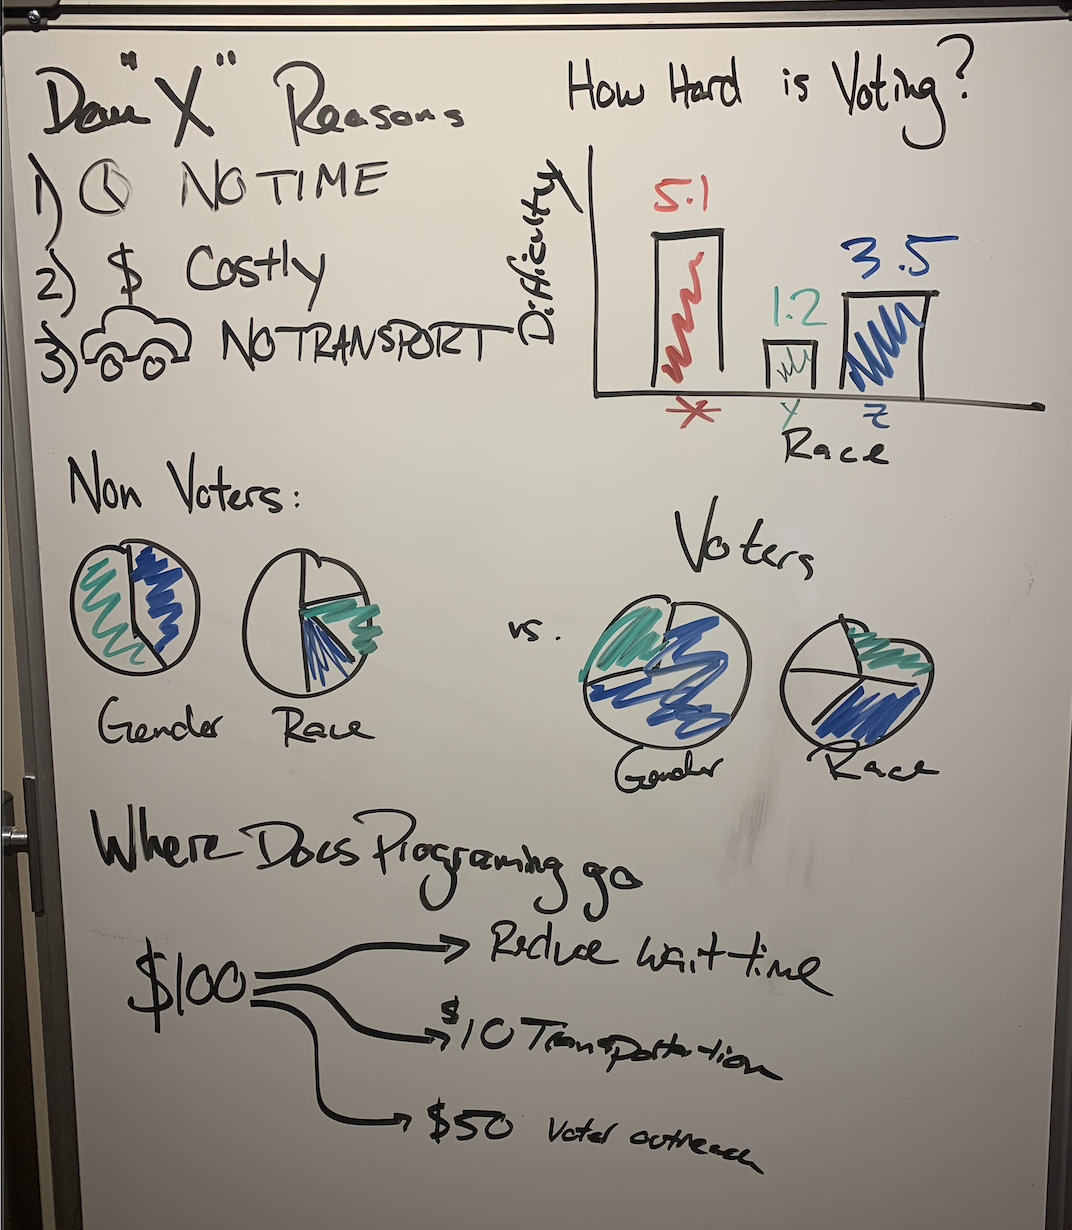 Dem "X" Reasons
1) NO TIME
2) $ Costly
3) NO TRANSPORT
How Hard is Voting?
Difficulty
5.1
1.2
3.5
X
Y
Z
Race
Non Voters:
Gender
Race
vs.
Voters
Gender
Race
Where Does Programing go
$100
Reduce wait time
$10 Transportation
$50 Voter outreach